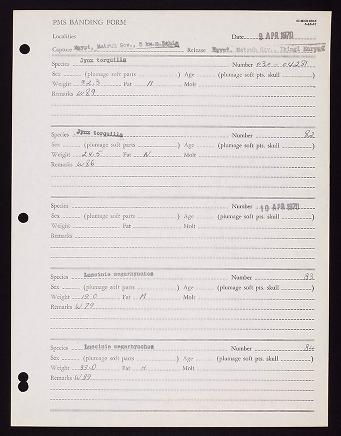 PMS BANDING FORM
Localities Date 9 APR 1970
Capture Egypt, Matruh Gov., 5 km. Release Egypt, Matruh Gov.,
Species Jynx torquilla Number 030-04281
Sex (plumage soft parts ) Age (plumage soft pts. skull )
Weight 32.3 Fat N Molt
Remarks W89
Species Jynx torquilla Number 82
Sex (plumage soft parts ) Age (plumage soft pts. skull )
Weight 24.5 Fat N Molt
Remarks W86
Species Number 10 APR 1970
Sex (plumage soft parts ) Age (plumage soft pts. skull )
Weight Fat Molt
Remarks
Species Luscinia megarhynchos Number 83
Sex (plumage soft parts ) Age (plumage soft pts. skull )
Weight 19.0 Fat M Molt
Remarks W79
Species Luscinia megarhynchos Number 84
Sex (plumage soft parts ) Age (plumage soft pts. skull )
Weight Fat Molt
Remarks W89